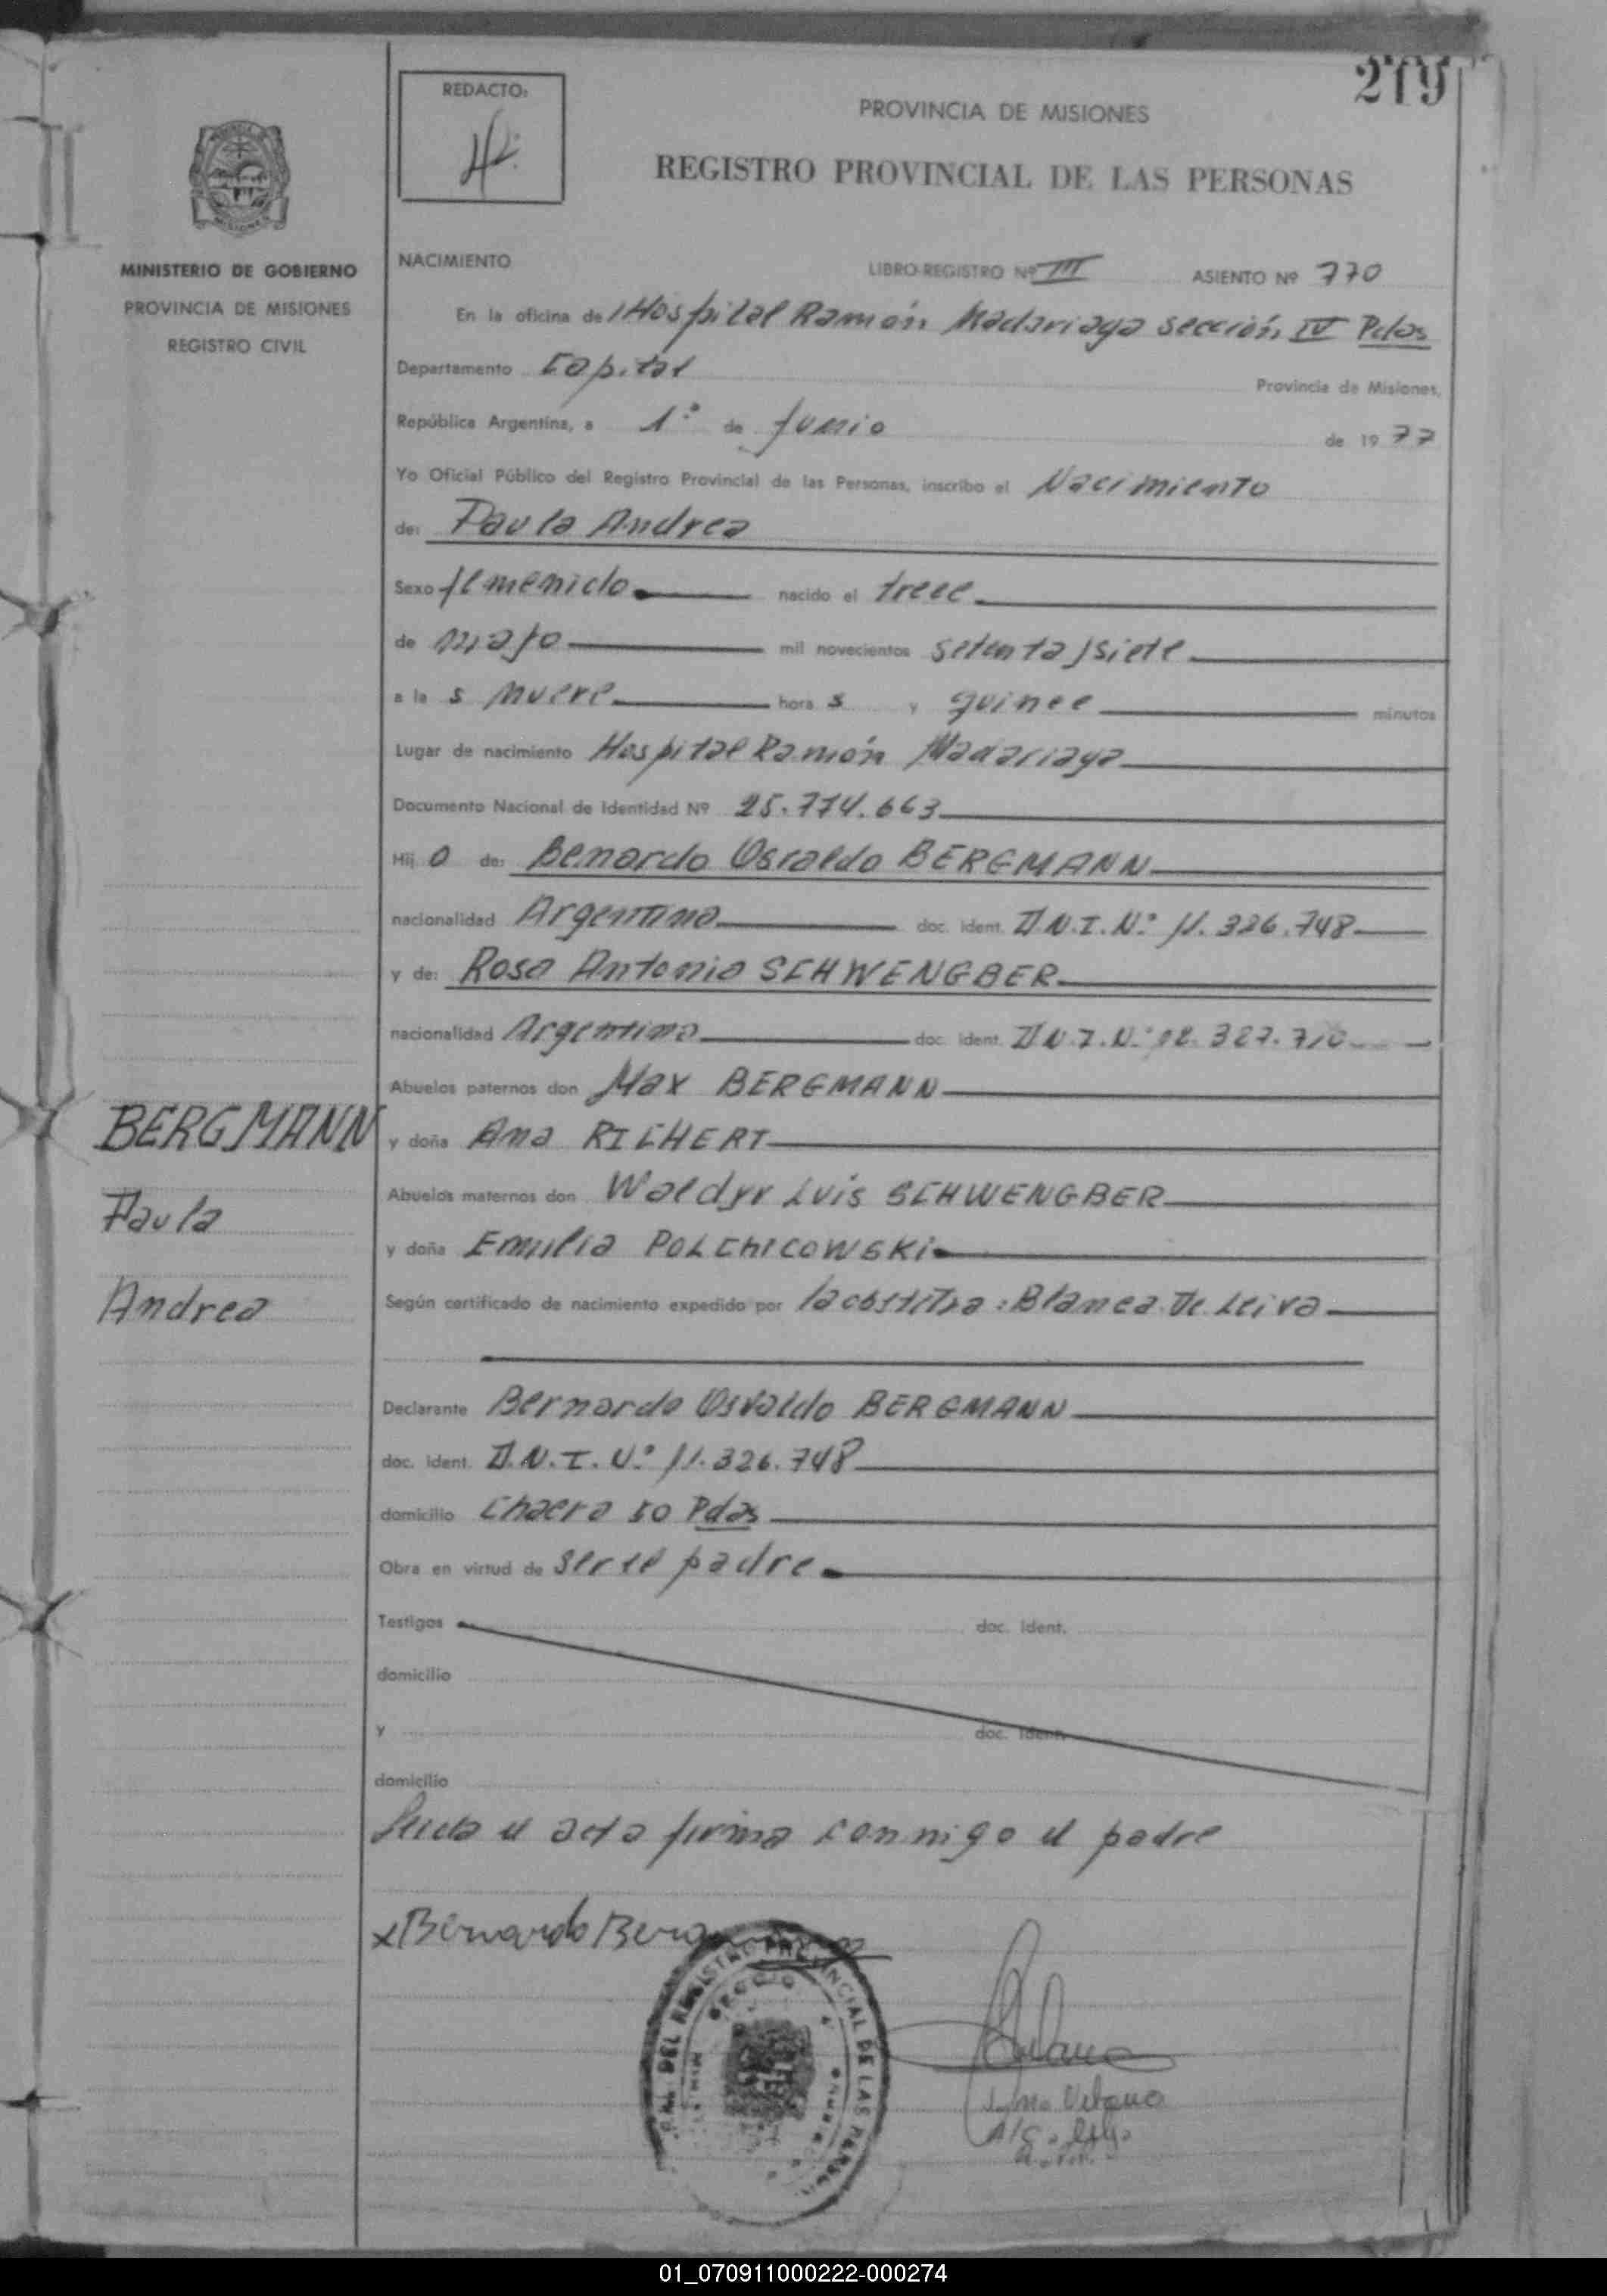 219
REDACTO:
PROVINCIA DE MISIONES
REGISTRO PROVINCIAL DE LAS PERSONAS
MINISTERIO DE GOBIERNO
PROVINCIA DE MISIONES
REGISTRO CIVIL
NACIMIENTO LIBRO-REGISTRO Nº III ASIENTO Nº 770
En la oficina de l Hospital Ramón Madariaga sección IV Pdas
Departamento Capital Provincia de Misiones,
República Argentina, a 1º de Junio de 19 77
Yo Oficial Público del Registro Provincial de las Personas, inscribo el Nacimiento
de: Paula Andrea
Sexo femenido nacido el trece
de mayo mil novecientos setenta y siete
a la s nueve hora s y quince minutos
Lugar de nacimiento Hospital Ramón Madariaga
Documento Nacional de Identidad Nº 25.774.663
Hij o de: Benardo Osvaldo BERGMANN
nacionalidad Argentina doc. ident. D.N.I.Nº 11.326.748
y de: Rosa Antonia SCHWENGBER
nacionalidad Argentina doc. ident. D.N.I.Nº 387.710
Abuelos paternos don Max BERGMANN
y doña Ana RICHERT
Abuelos maternos don Waldyr Luis SCHWENGBER
y doña Emilia POLChICOWSKi
Según certificado de nacimiento expedido por la : Blanca De Leiva
BERGMANN
Paula
Andrea
Declarante Bernardo Osvaldo BERGMANN
doc. ident. D.N.I.Nº 11.326.748
domicilio Chacra 50 Pdas
Obra en virtud de ser el padre
Testigos doc. ident.
domicilio
y doc. ident.
domicilio
Leida el acta firma conmigo el padre
x Bernardo Bergmann
DEL REGISTRO PROVINCIAL DE LAS PERSON
01_070911000222-000274